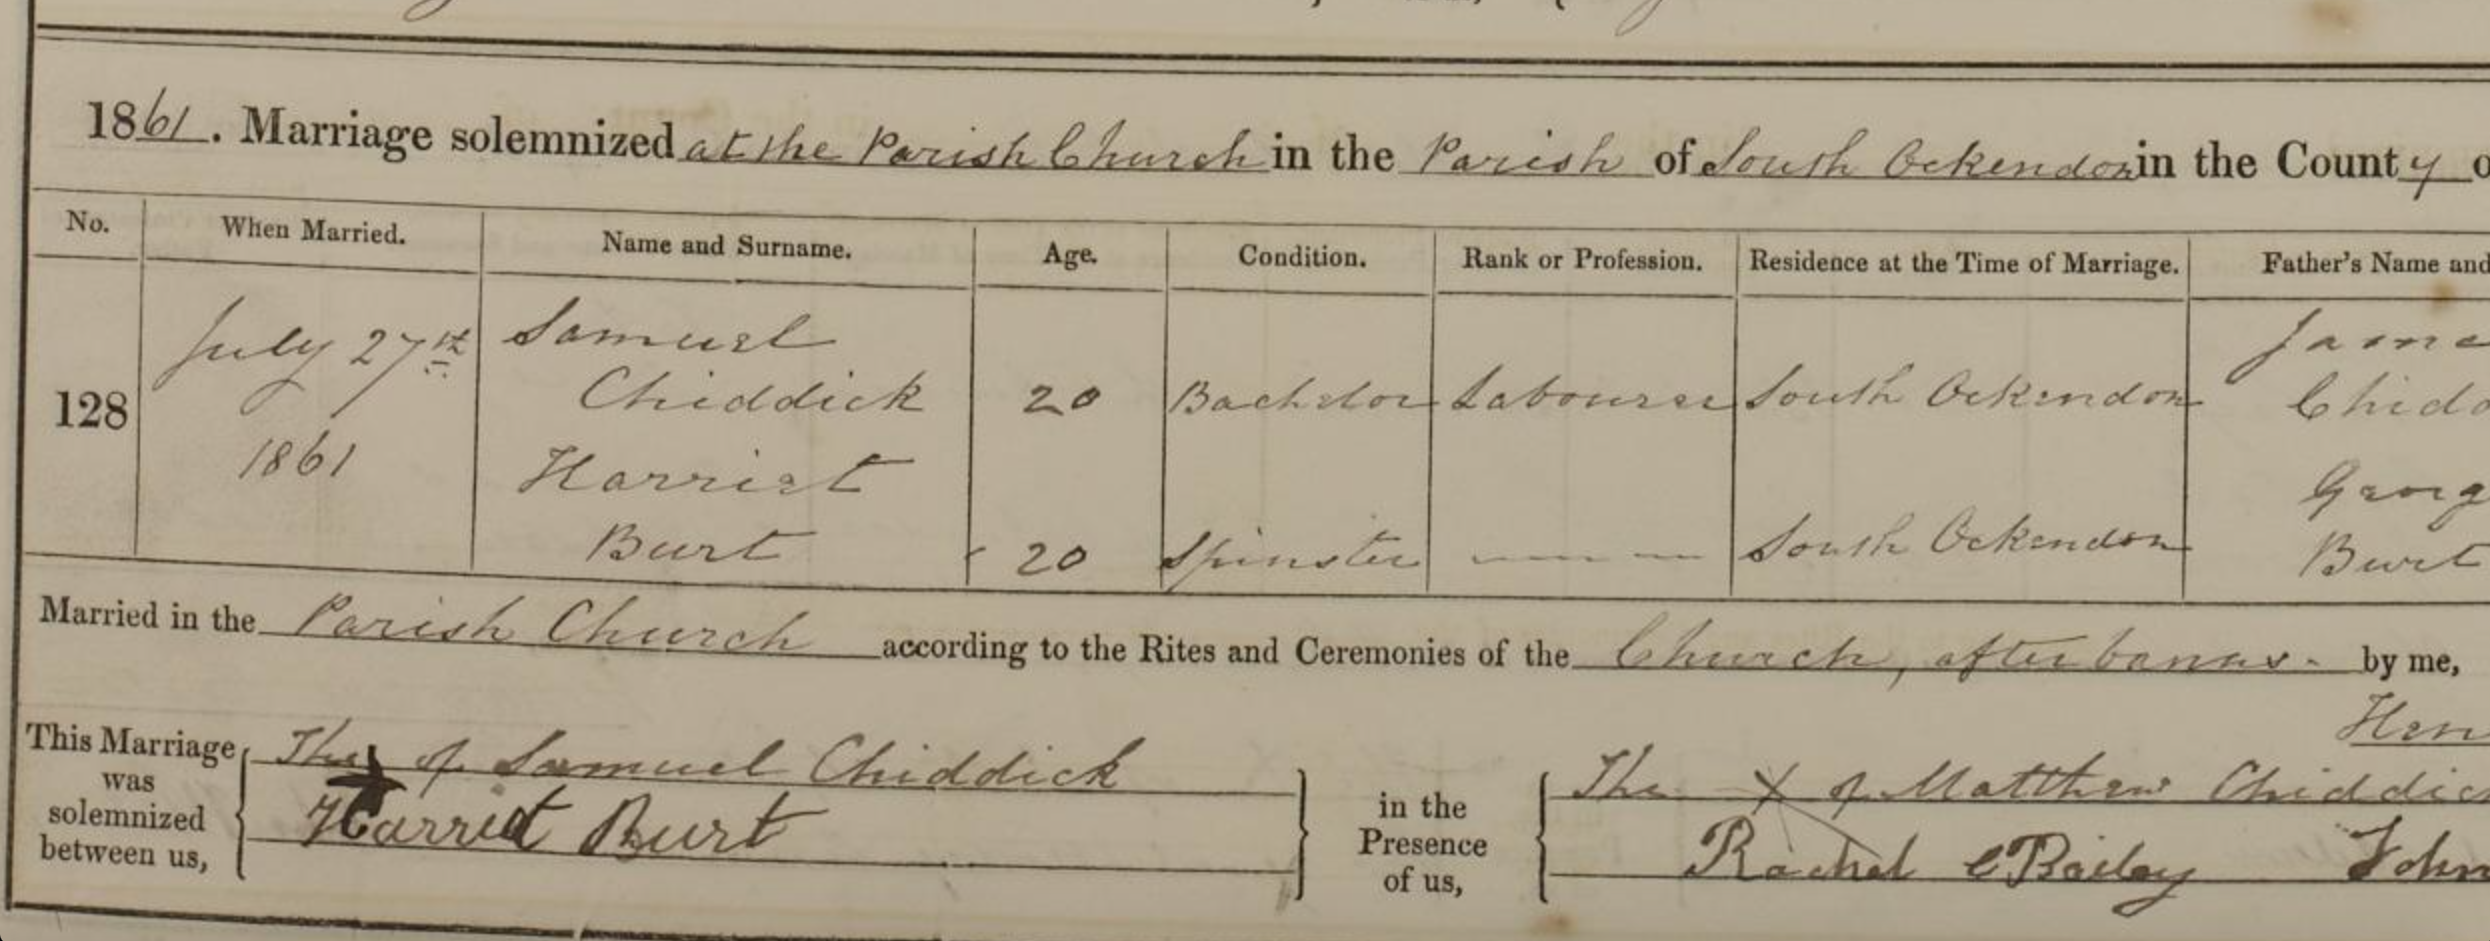 1861. Marriage solemnized at the Parish Church in the Parish of South Ockendon in the County o
No. When Married. Name and Surname. Age. Condition. Rank or Profession. Residence at the Time of Marriage. Father's Name and
128 July 27th 1861 Samuel Chiddick 20 Bachelor Labourer South Ockendon Jame Chidd
Harriet Burt 20 Spinster South Ockendon Georg Burt
Married in the Parish Church according to the Rites and Ceremonies of the Church, after banns. by me,
Hen
This Marriage was solemnized between us, The of Samuel Chiddick in the Presence of us, The X of Matthew Chiddic
Harriet Burt Rachel Bailey John